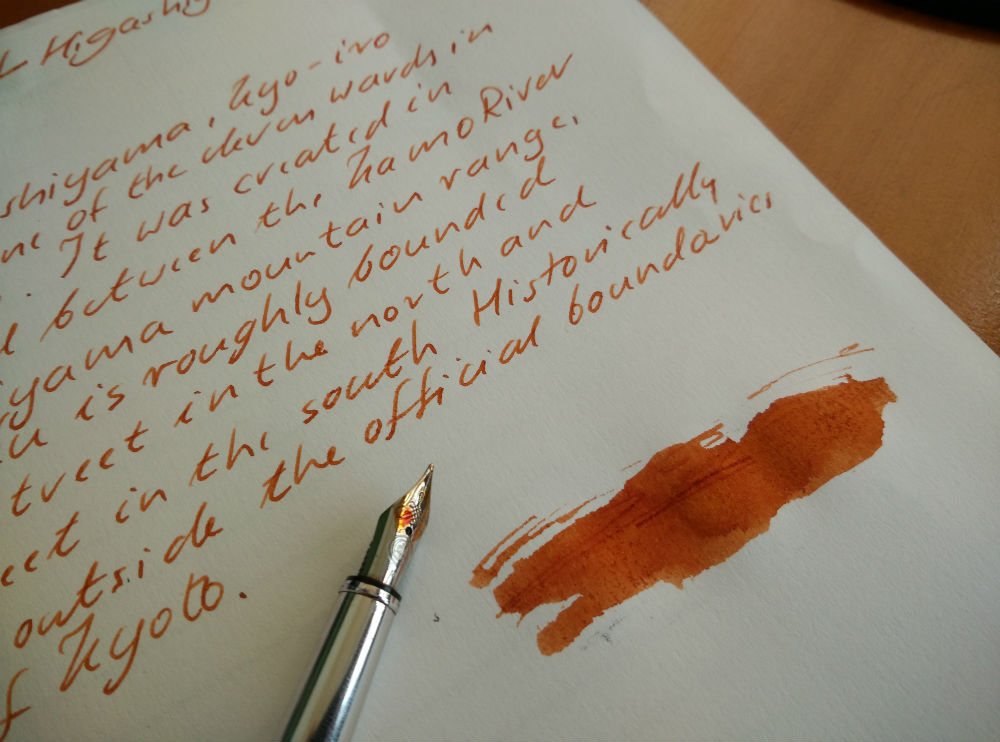 L Higashiy
shiyama, Kyo-iro
one of the eleven wards in
. It was created in
between the Kamo River
iyama mountain range.
is roughly bounded
treet in the north and
eet in the south Historically
outside the official boundaries
f Kyoto.